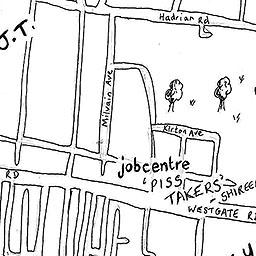 Hadrian Rd
J.T.
Milvain Ave
Kirton Ave
jobcentre
'PISS
TAKERS'
SHIREE
RD
WESTGATE R